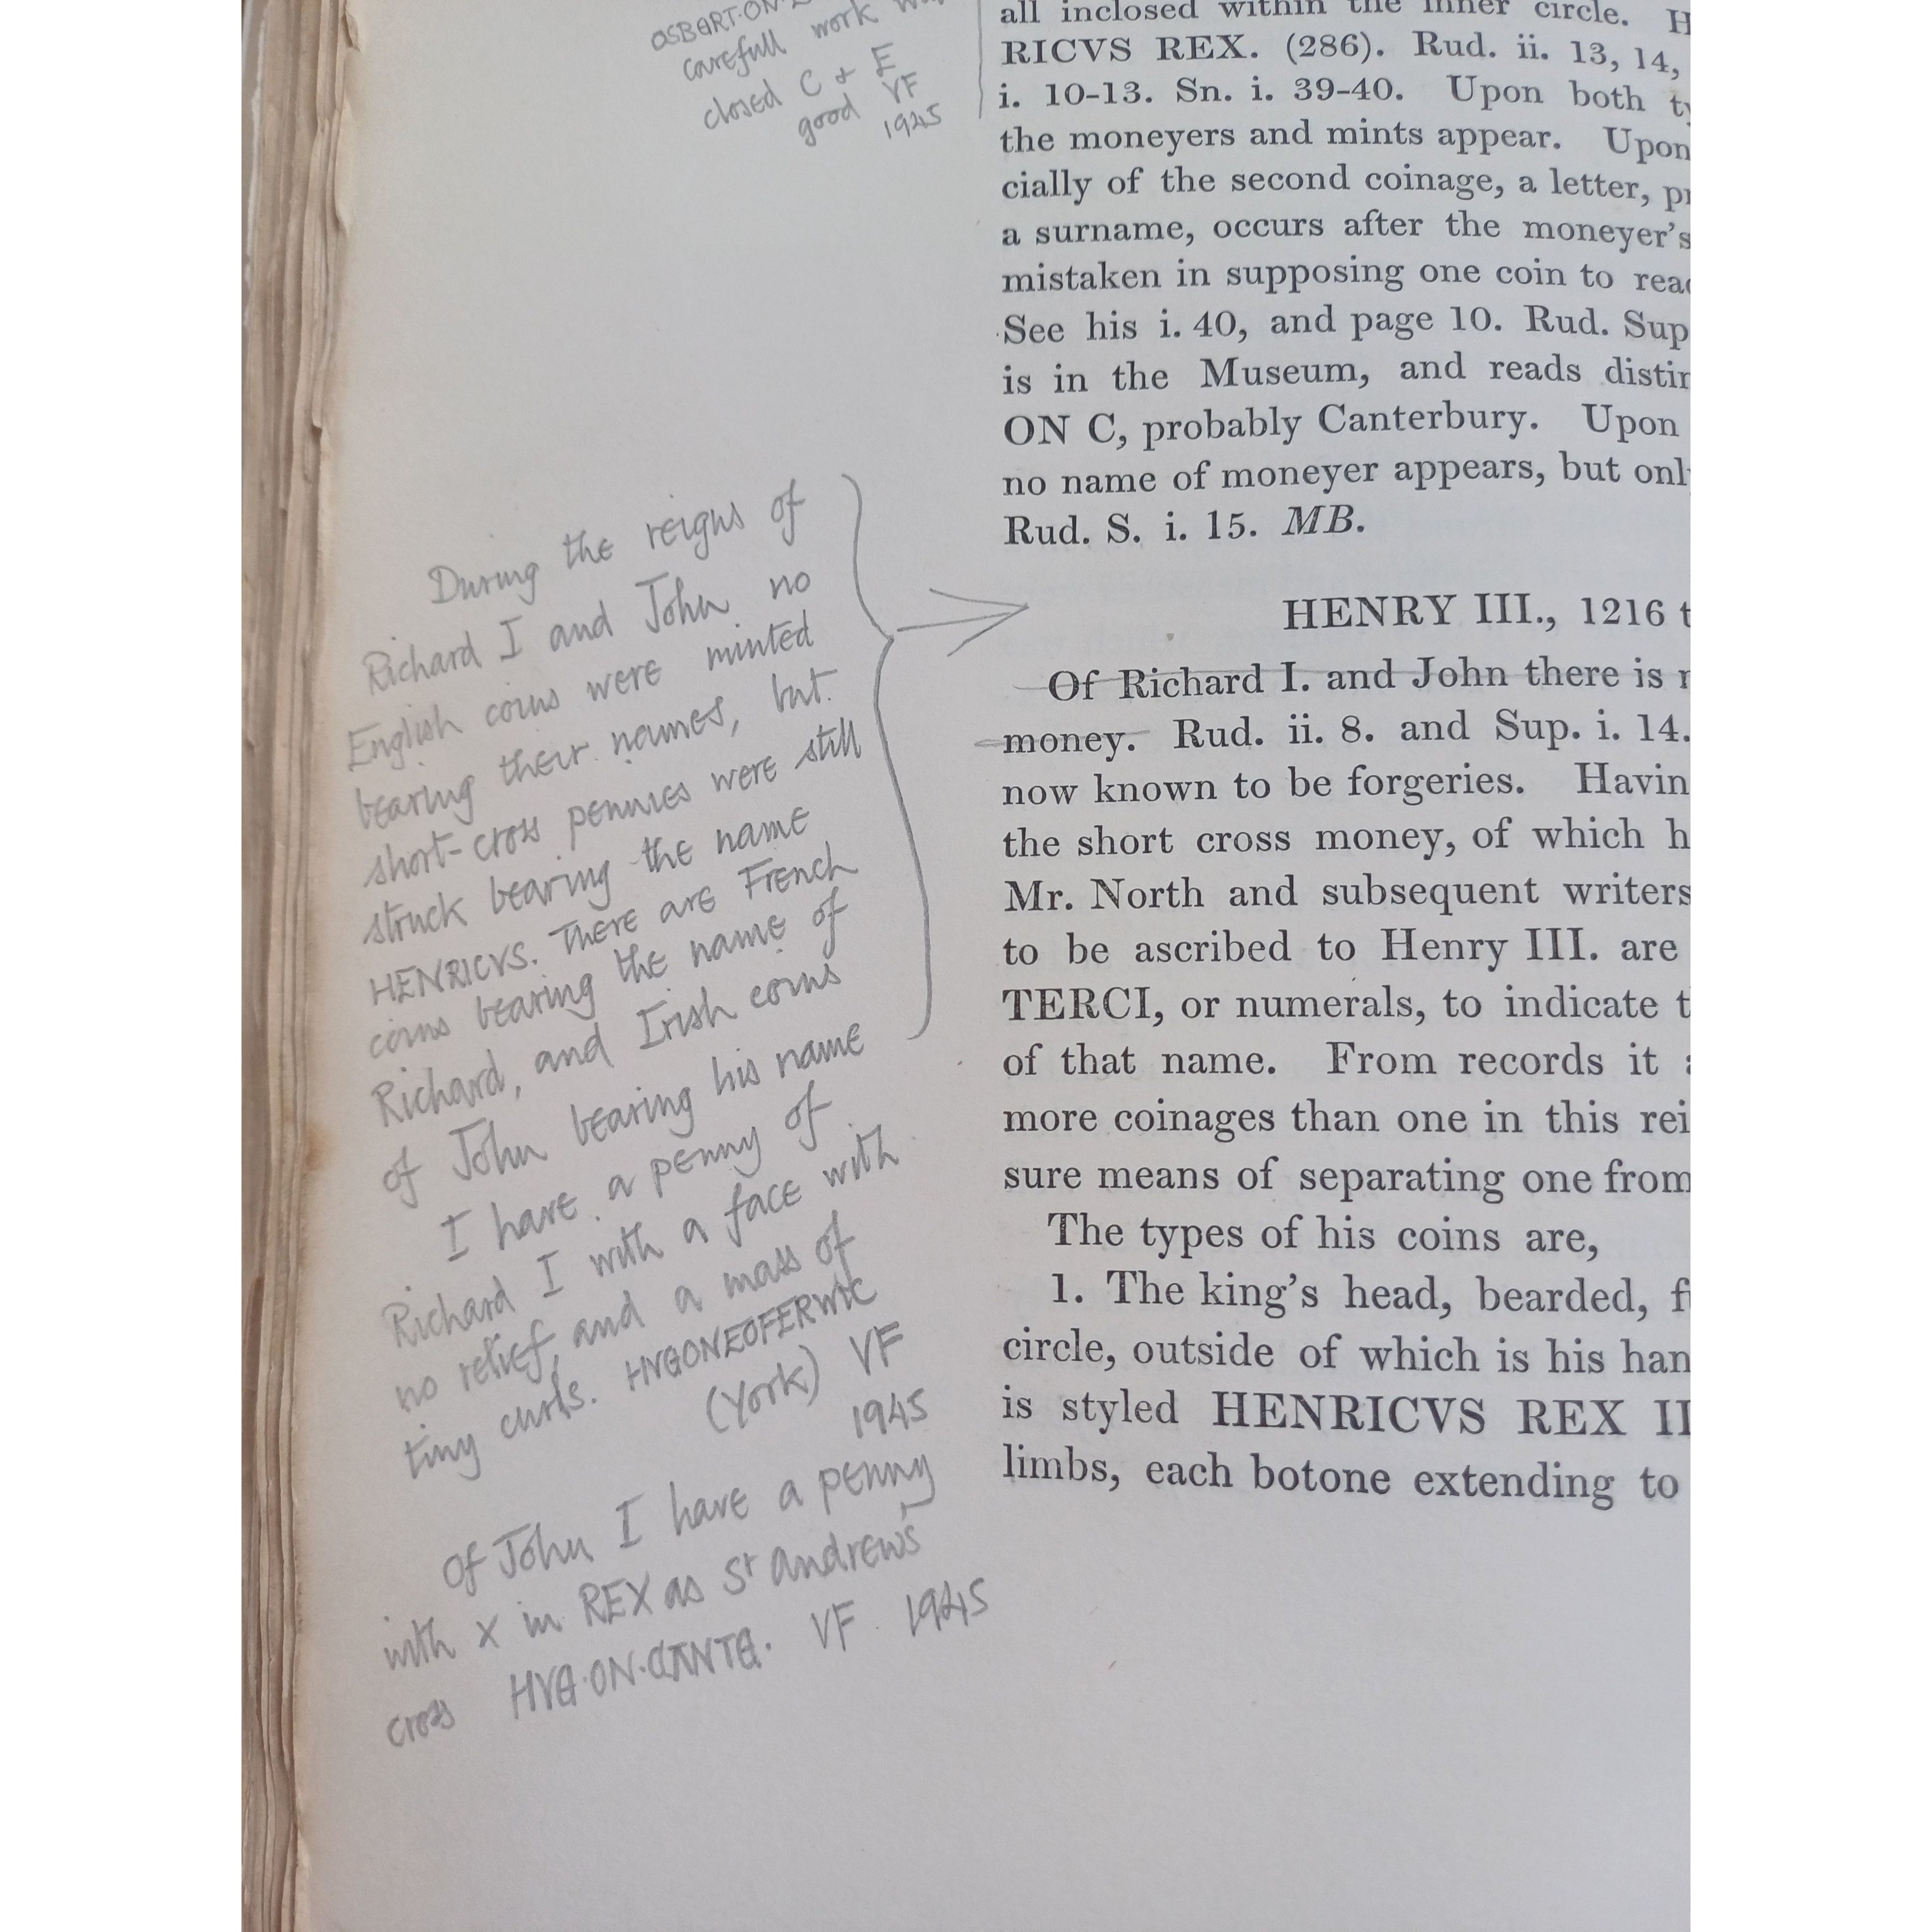 OSBERT·ON·
carefull work
closed C & E
good VF
1945
During the reigns of
Richard I and John no
English coins were minted
bearing their names, but
short-cross pennies were still
struck bearing the name
HENRICVS. There are French
coins bearing the name of
Richard, and Irish coins
of John bearing his name
I have a penny of
Richard I with a face with
no relief, and a mass of
tiny curls. HVGONEOFERWIC
(York) VF
1945
Of John I have a penny
with x in REX as St andrew's
cross HVG·ON·CANTE· VF 1945
all inclosed within the inner circle. H
RICVS REX. (286). Rud. ii. 13, 14,
i. 10-13. Sn. i. 39-40. Upon both ty
the moneyers and mints appear. Upon
cially of the second coinage, a letter, pr
a surname, occurs after the moneyer's
mistaken in supposing one coin to read
See his i. 40, and page 10. Rud. Sup
is in the Museum, and reads distin
ON C, probably Canterbury. Upon
no name of moneyer appears, but onl
Rud. S. i. 15. MB.
HENRY III., 1216 t
Of Richard I. and John there is n
money. Rud. ii. 8. and Sup. i. 14.
now known to be forgeries. Havin
the short cross money, of which h
Mr. North and subsequent writers
to be ascribed to Henry III. are
TERCI, or numerals, to indicate t
of that name. From records it a
more coinages than one in this rei
sure means of separating one from
The types of his coins are,
1. The king's head, bearded, fu
circle, outside of which is his han
is styled HENRICVS REX II
limbs, each botone extending to